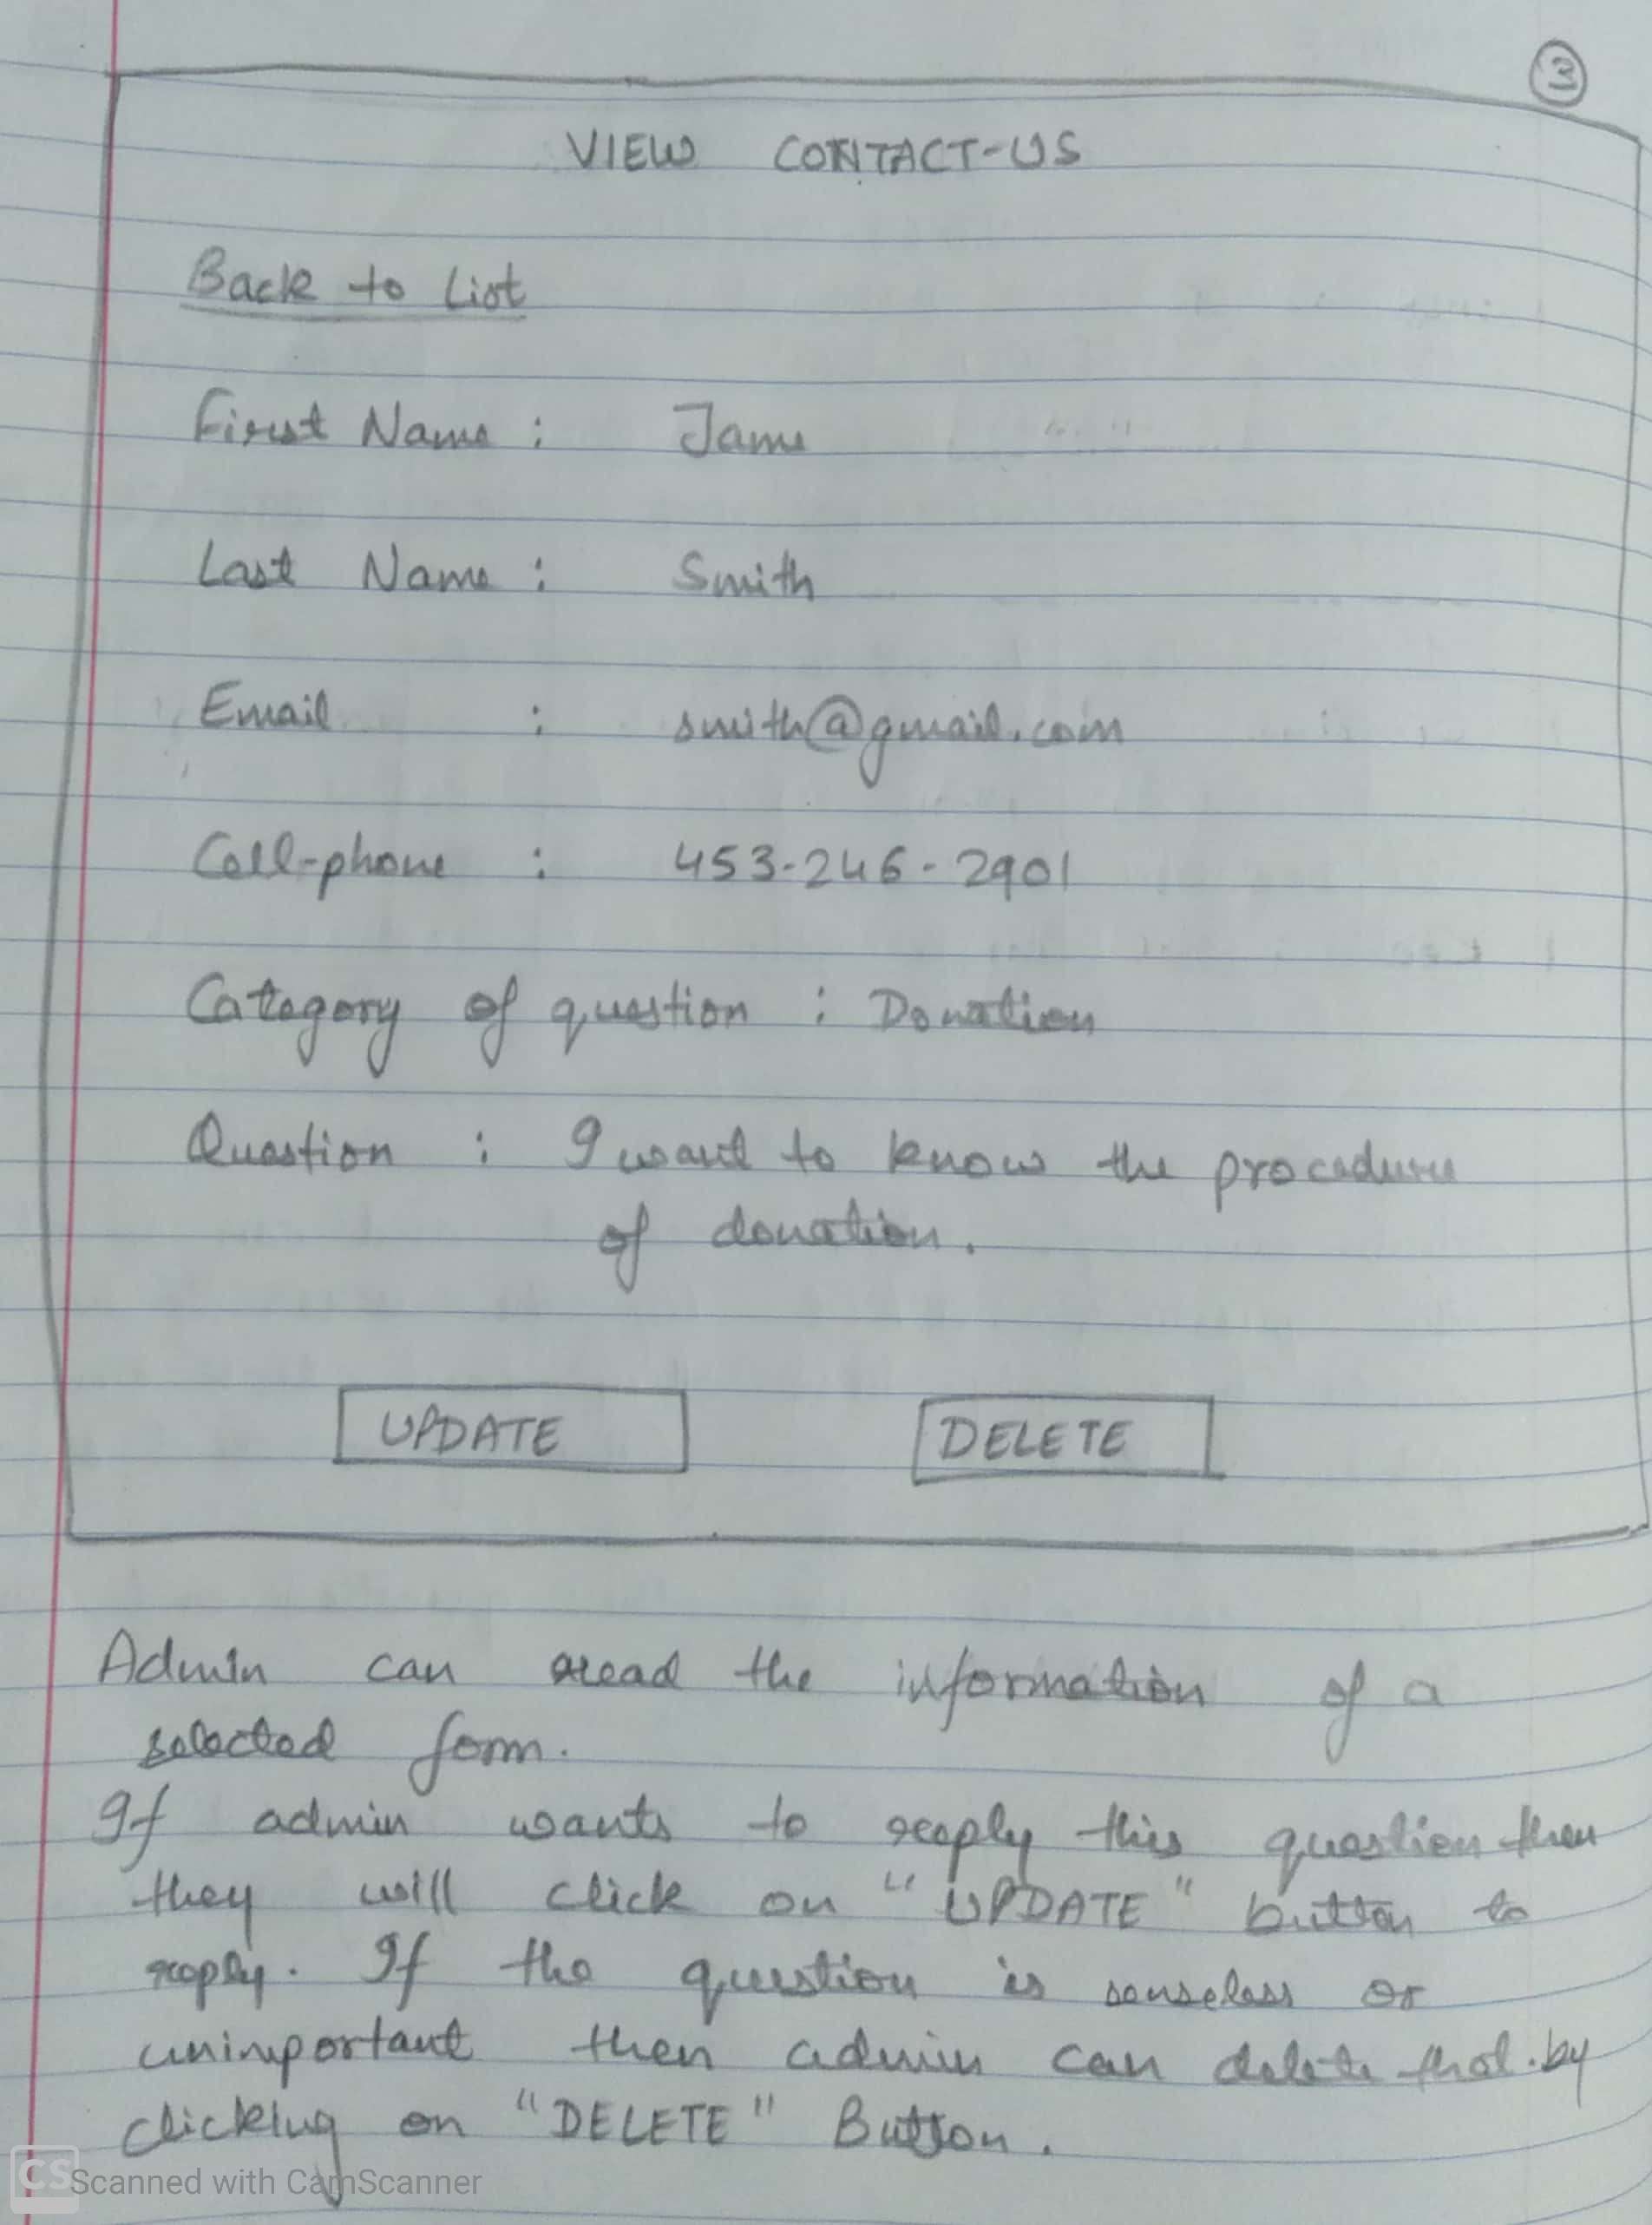 3
VIEW CONTACT-US
Back to List
First Name : Jame
Last Name : Smith
Email : smith@gmail.com
Cell-phone : 453-246-2901
Category of question : Donation
Question : I want to know the procedure
of donation.
UPDATE DELETE
Admin can read the information of a
selected form.
If admin wants to reply this question then
they will click on "UPDATE" button to
reply. If the question is senseless or
unimportant then admin can delete that by
clicking on "DELETE" Button.
CS Scanned with CamScanner